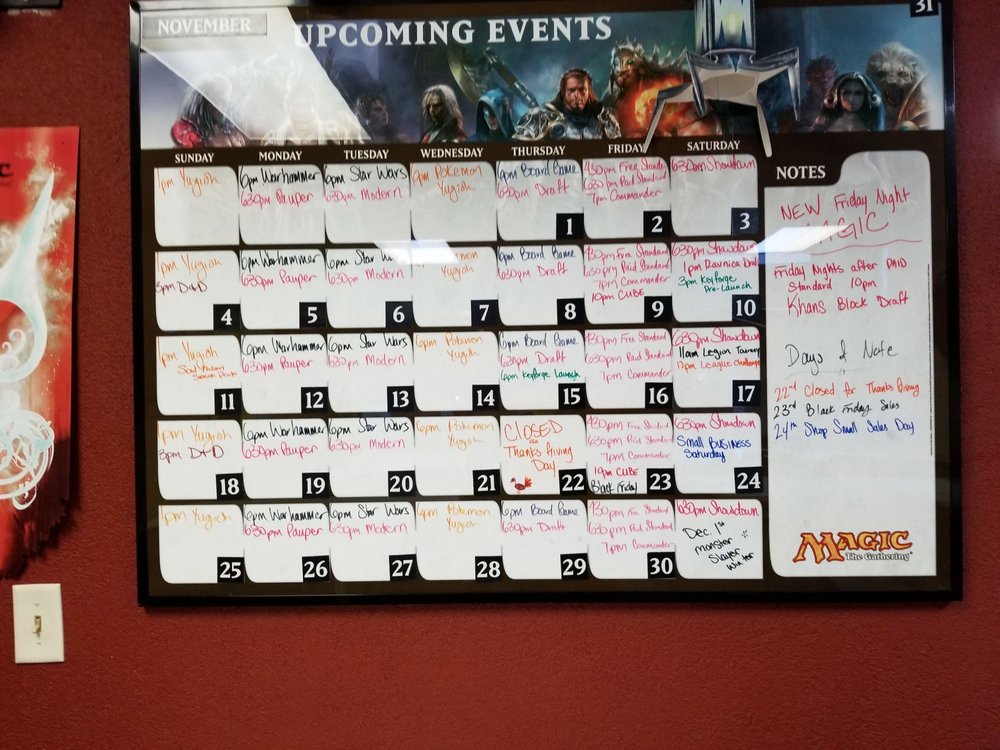 NOVEMBER
UPCOMING EVENTS
31
SUNDAY MONDAY TUESDAY WEDNESDAY THURSDAY FRIDAY SATURDAY
1pm Yugioh
6pm Warhammer
6:30pm Pauper
6pm Star Wars
6:30pm Modern
6pm Pokemon
Yugioh
6pm Board Game
6:30pm Draft
1
4:30pm Free Standard
6:30pm Paid Standard
7pm Commander
2
6:30pm Showdown
3
1pm Yugioh
3pm D&D
4
6pm Warhammer
6:30pm Pauper
5
6pm Star Wars
6:30pm Modern
6
Yugioh
7
6pm Board Game
6:30pm Draft
8
4:30pm Free Standard
6:30pm Paid Standard
7pm Commander
10pm CUBE
9
6:30pm Showdown
1pm Ravnica Draft
3pm Keyforge
Pre-Launch
10
1pm Yugioh
11
6pm Warhammer
6:30pm Pauper
12
6pm Star Wars
6:30pm Modern
13
6pm Pokemon
Yugioh
14
6pm Board Game
6:30pm Draft
6pm Keyforge Launch
15
4:30pm Free Standard
6:30pm Paid Standard
7pm Commander
16
6:30pm Showdown
11am Legion Tourney
12pm League Challenge
17
1pm Yugioh
3pm D&D
18
6pm Warhammer
6:30pm Pauper
19
6pm Star Wars
6:30pm Modern
20
6pm Pokemon
Yugioh
21
CLOSED
Thanks Giving
Day
22
4:30pm Free Standard
6:30pm Paid Standard
7pm Commander
10pm CUBE
Black Friday
23
6:30pm Showdown
Small BUSINESS
Saturday
24
1pm Yugioh
25
6pm Warhammer
6:30pm Pauper
26
6pm Star Wars
6:30pm Modern
27
6pm Pokemon
Yugioh
28
6pm Board Game
6:30pm Draft
29
4:30pm Free Standard
6:30pm Paid Standard
7pm Commander
30
6:30pm Showdown
Dec. 1st
monster
Slayer
Winter
NOTES
NEW Friday Night
MAGIC
Friday Nights after PAID
Standard 10pm
Khans Block Draft
Days of Note
22nd Closed for Thanks Giving
23rd Black Friday Sales
24th Shop Small Sales Day
MAGIC
The Gathering